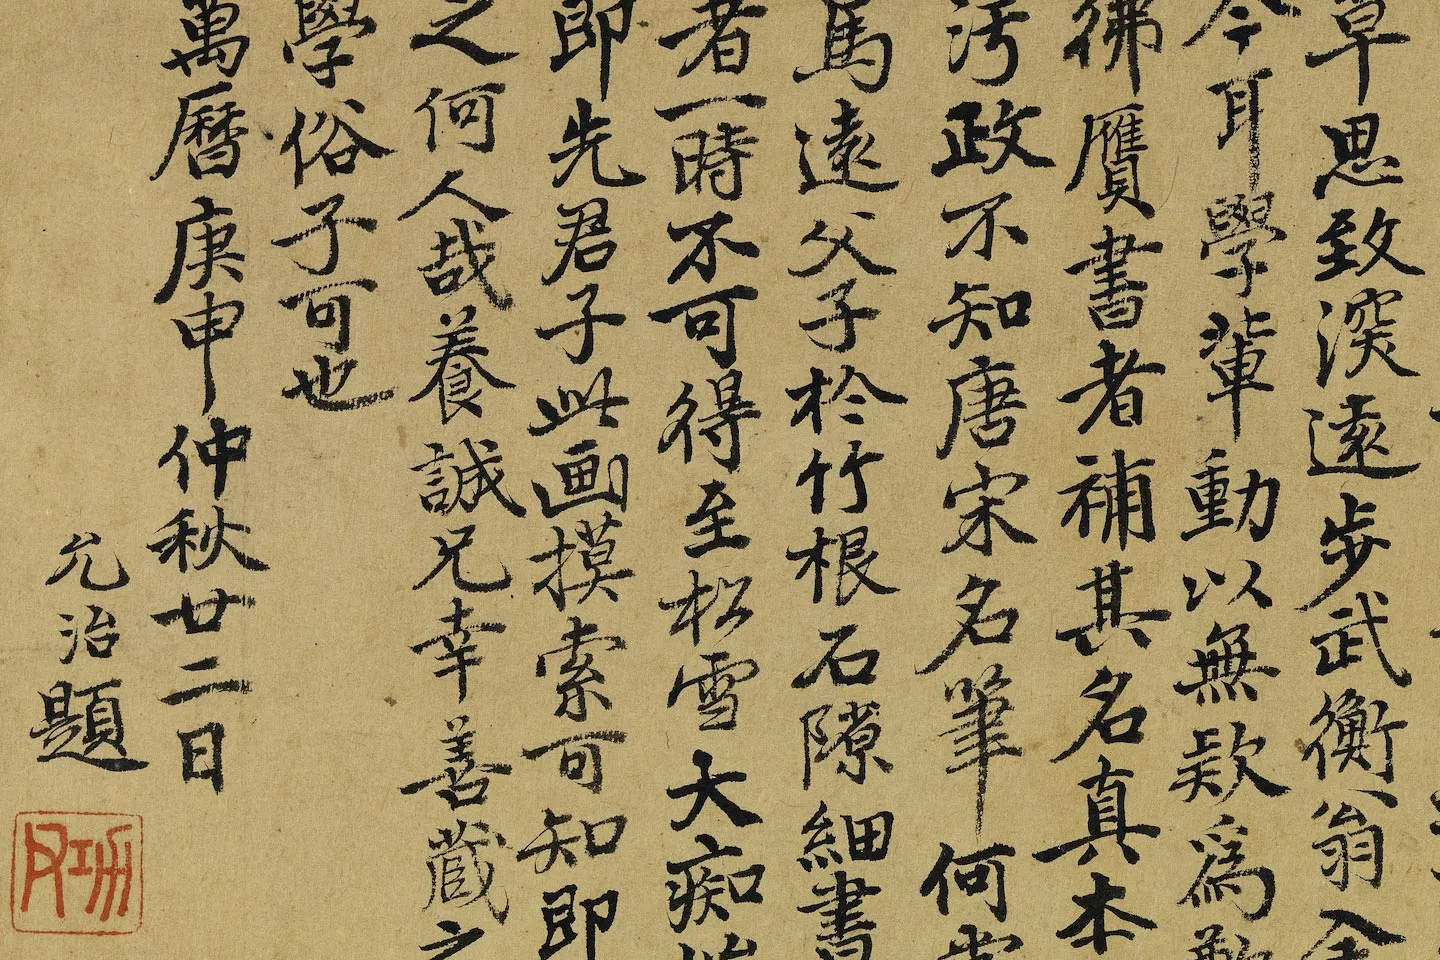 草思致深遠步武衡翁入
今耳學輩動以無欵為
彿贋書者補其名真本
污政不知唐宋名筆何
馬遠父子於竹根石隙細書
者一時不可得至松雪大痴
即先君子此画摸索可知即
之何人哉養誠兄幸善蔵之
學俗子可也
萬曆庚申仲秋廿二日
允治題